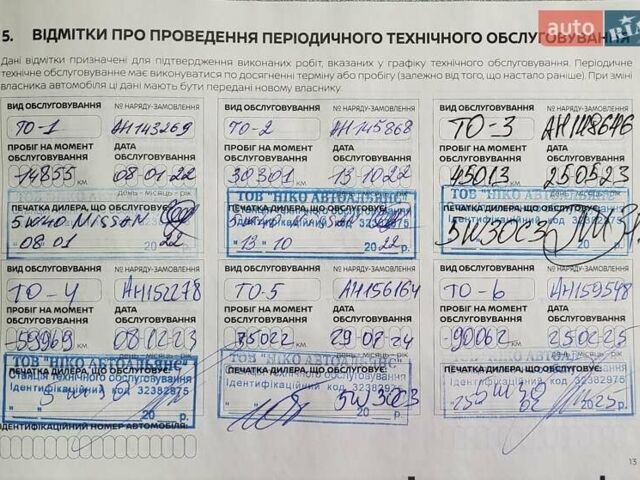 auto RIA
5. ВІДМІТКИ ПРО ПРОВЕДЕННЯ ПЕРІОДИЧНОГО ТЕХНІЧНОГО ОБСЛУГОВУВАННЯ
Дані відмітки призначені для підтвердження виконаних робіт, вказаних у графіку технічного обслуговування. Періодичне
технічне обслуговування має виконуватися по досягненні терміну або пробігу (залежно від того, що настало раніше). При зміні
власника автомобіля ці дані мають бути передані новому власнику.
ВИД ОБСЛУГОВУВАННЯ № НАРЯДУ-ЗАМОВЛЕННЯ
ТО-1 АН143269
ПРОБІГ НА МОМЕНТ ОБСЛУГОВУВАННЯ ДАТА ОБСЛУГОВУВАННЯ
14855 км 08 01 22
день – місяць – рік
ПЕЧАТКА ДИЛЕРА, ЩО ОБСЛУГОВУЄ:
5W40 Nissan
08 01 2022 р.
ВИД ОБСЛУГОВУВАННЯ № НАРЯДУ-ЗАМОВЛЕННЯ
ТО-2 АН145868
ПРОБІГ НА МОМЕНТ ОБСЛУГОВУВАННЯ ДАТА ОБСЛУГОВУВАННЯ
30301 км 13 10 22
день – місяць – рік
ТОВ "НІКО АВТОАЛЬЯНС"
ПЕЧАТКА ДИЛЕРА, ЩО ОБСЛУГОВУЄ:
Ідентифікаційний код 32382975
"13" 10 2022 р.
ВИД ОБСЛУГОВУВАННЯ № НАРЯДУ-ЗАМОВЛЕННЯ
ТО-3 АН148646
ПРОБІГ НА МОМЕНТ ОБСЛУГОВУВАННЯ ДАТА ОБСЛУГОВУВАННЯ
45013 км 25 05 23
ТОВ "НІКО АВТОАЛЬЯНС"
ПЕЧАТКА ДИЛЕРА, ЩО ОБСЛУГОВУЄ:
Ідентифікаційний код 32382975
5W30C3
ВИД ОБСЛУГОВУВАННЯ № НАРЯДУ-ЗАМОВЛЕННЯ
ТО-4 АН152278
ПРОБІГ НА МОМЕНТ ОБСЛУГОВУВАННЯ ДАТА ОБСЛУГОВУВАННЯ
59969 км 08 02 23
ТОВ "НІКО АВТОАЛЬЯНС"
ПЕЧАТКА ДИЛЕРА, ЩО ОБСЛУГОВУЄ:
Станція технічного обслуговування
Ідентифікаційний код 32382975
20 р.
ВИД ОБСЛУГОВУВАННЯ № НАРЯДУ-ЗАМОВЛЕННЯ
ТО-5 АН156164
ПРОБІГ НА МОМЕНТ ОБСЛУГОВУВАННЯ ДАТА ОБСЛУГОВУВАННЯ
75022 км 29 07 24
ТОВ "НІКО АВТОАЛЬЯНС"
ПЕЧАТКА ДИЛЕРА, ЩО ОБСЛУГОВУЄ:
Ідентифікаційний код 32382975
5W30C3
ВИД ОБСЛУГОВУВАННЯ № НАРЯДУ-ЗАМОВЛЕННЯ
ТО-6 АН159548
ПРОБІГ НА МОМЕНТ ОБСЛУГОВУВАННЯ ДАТА ОБСЛУГОВУВАННЯ
90062 км 25 02 25
ПЕЧАТКА ДИЛЕРА, ЩО ОБСЛУГОВУЄ:
Ідентифікаційний код 32382975
5W30
25 02 2025 р.
ІДЕНТИФІКАЦІЙНИЙ НОМЕР АВТОМОБІЛЯ:
13